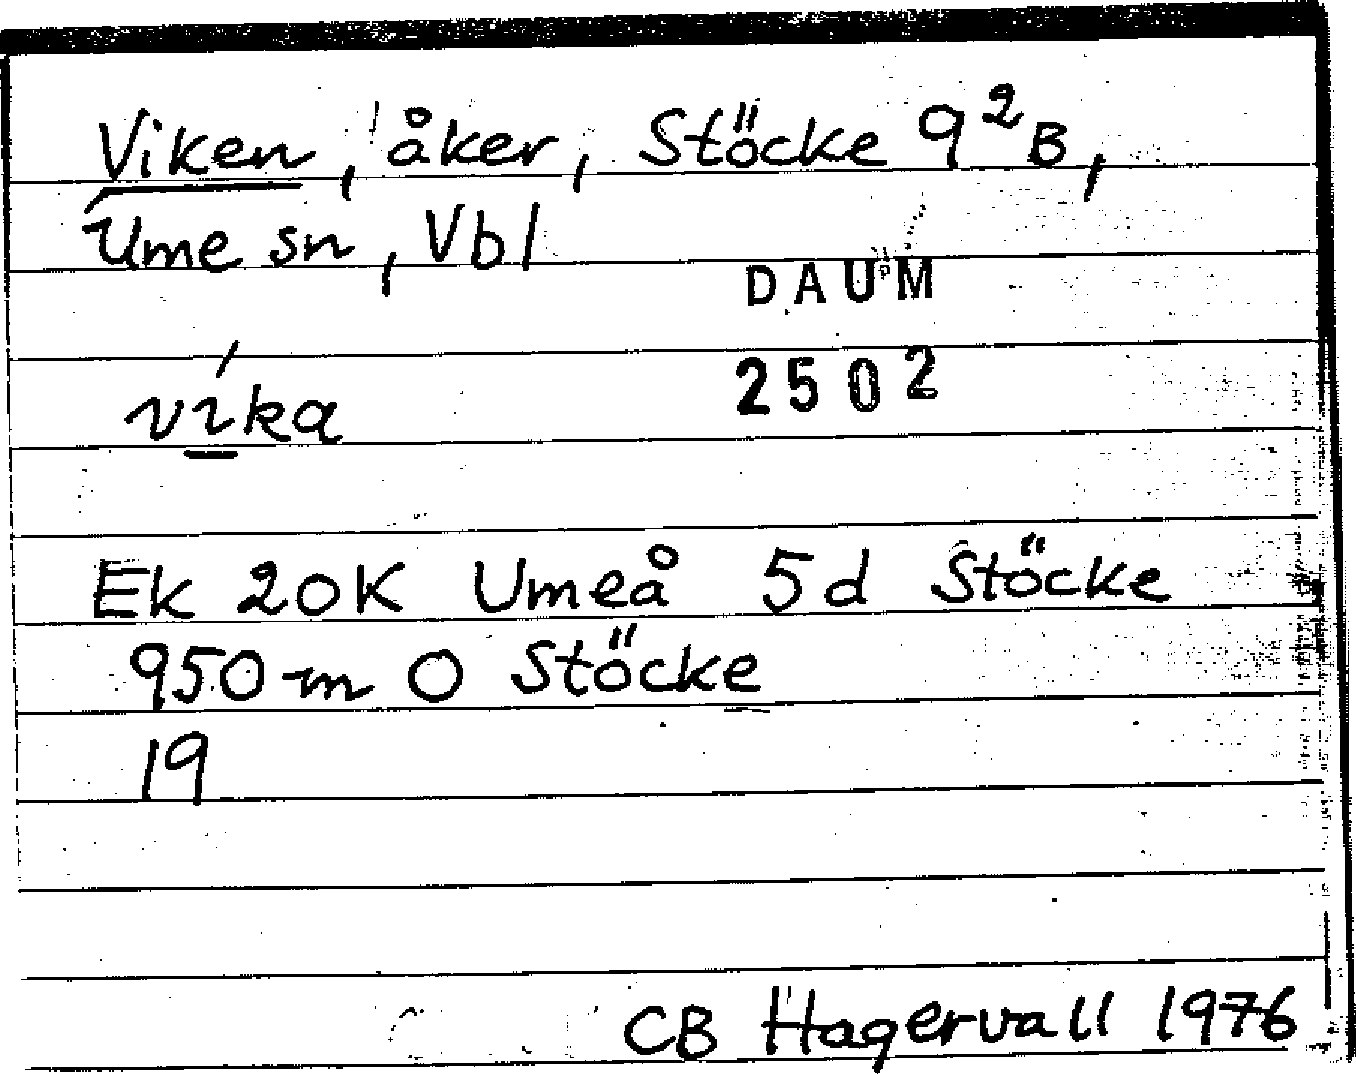 Viken, åker, Stöcke 9²B,
Ume sn, Vbl
DAUM
víka
2502
Ek 20K Umeå 5d Stöcke
950 m O Stöcke
19
CB Hagervall 1976